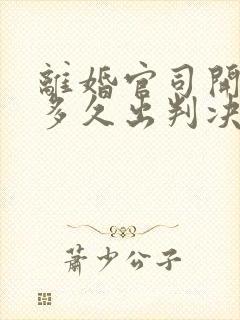 離婚官司開
多久出判決
蕭少公子